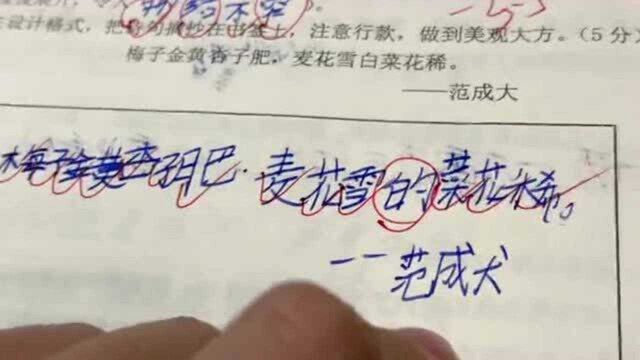 设计格式，把诗句摘抄在书签上，注意行款，做到美观大方。（5分）
梅子金黄杏子肥，麦花雪白菜花稀。
——范成大
梅子金黄杏子月巴.麦花雪的菜花禾希。
——范成犬